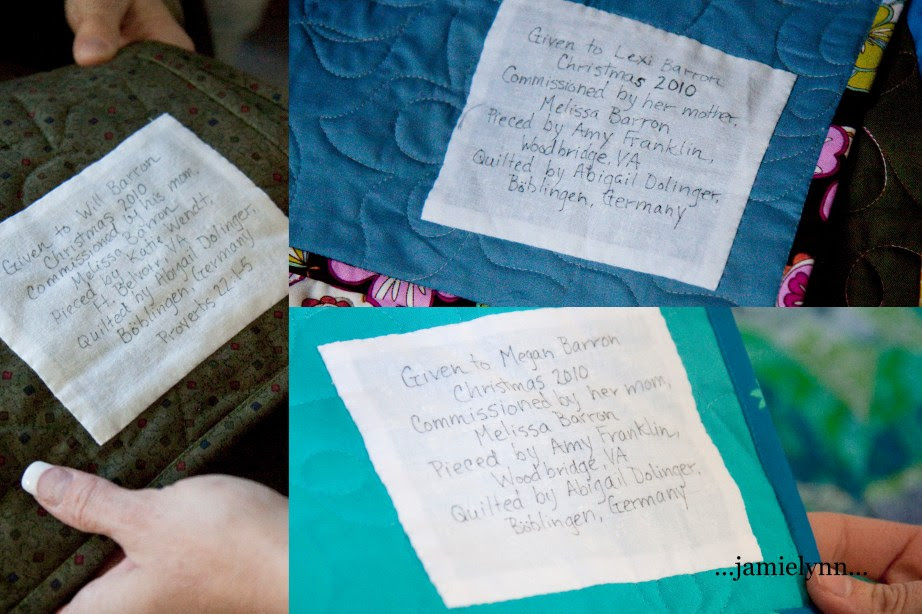 Given to Will Barron
Christmas 2010
Commissioned by his mom,
Melissa Barron
Pieced by Katie Wendt,
Ft. Belvoir, VA
Quilted by Abigail Dolinger,
Böblingen, Germany
Proverbs 22:4-5
Given to Lexi Barron
Christmas 2010
Commissioned by her mother,
Melissa Barron
Pieced by Amy Franklin,
Woodbridge, VA
Quilted by Abigail Dolinger,
Böblingen, Germany
Given to Megan Barron
Christmas 2010
Commissioned by her mom,
Melissa Barron
Pieced by Amy Franklin,
Woodbridge, VA
Quilted by Abigail Dolinger,
Böblingen, Germany
...jamielynn...